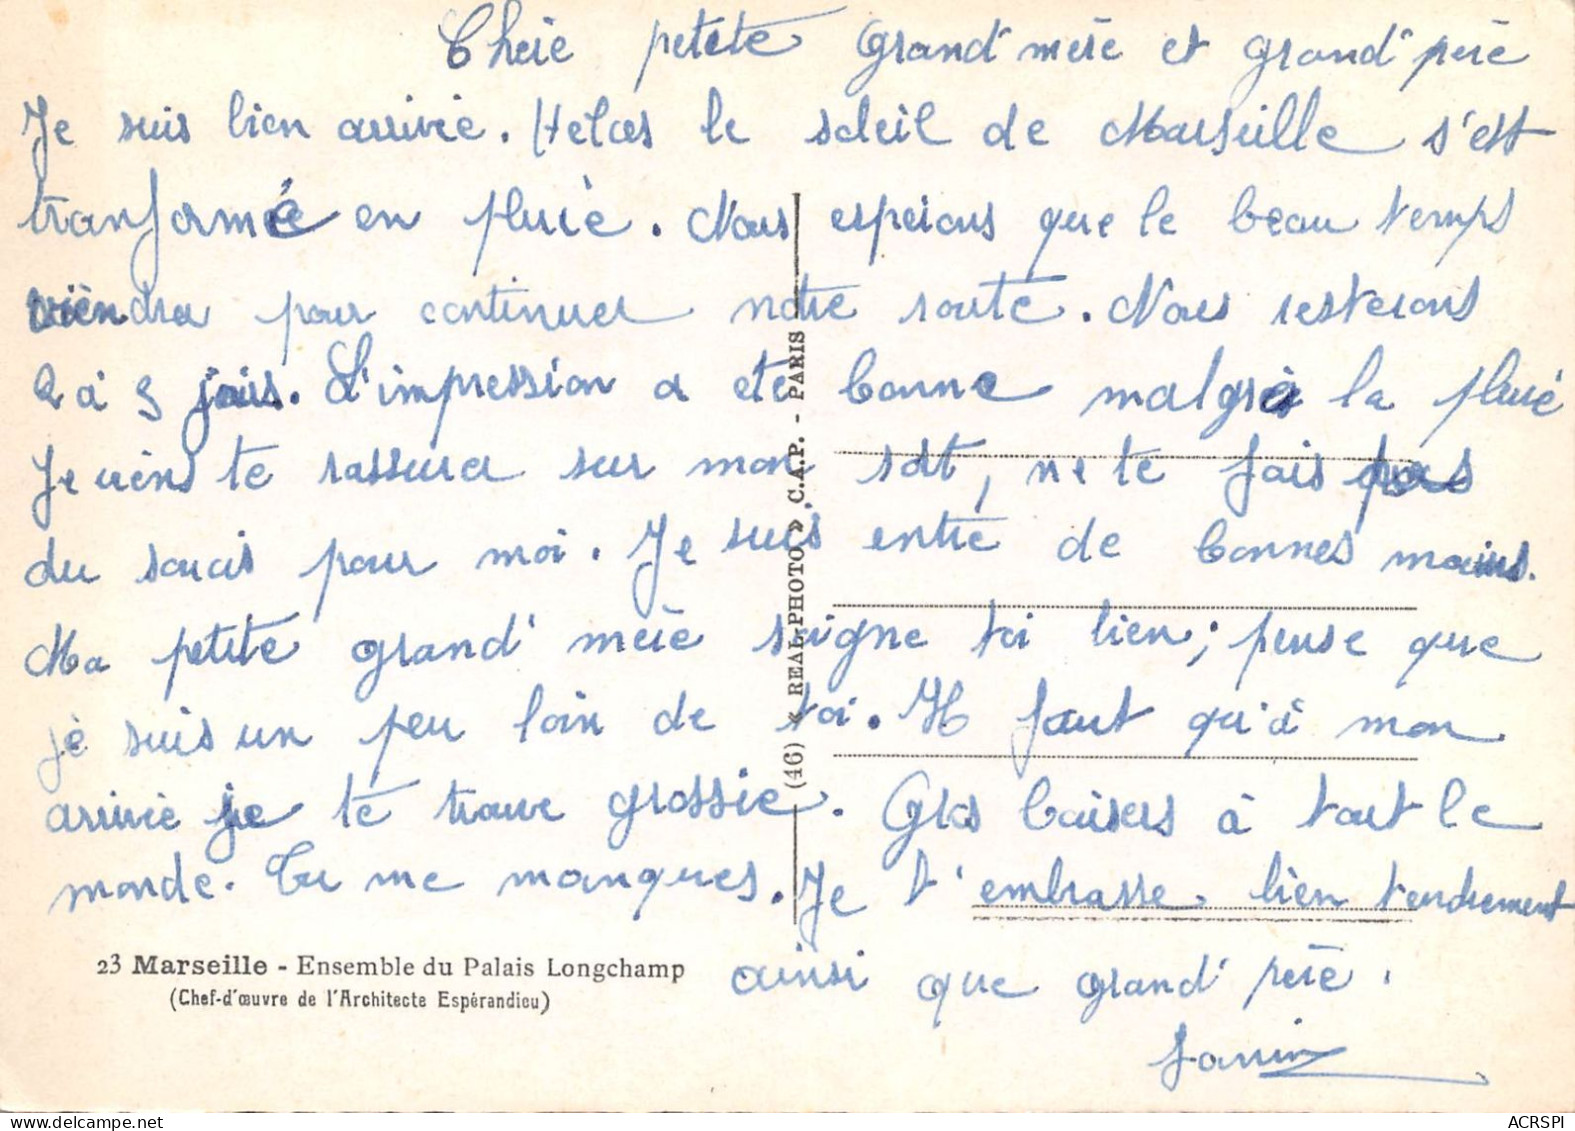 Cherie petite Grand' mère et grand' père
Je suis bien arrivée. Helas le soleil de Marseille s'est
tranformée en pluie. Nous esperons que le beau temps
viendra pour continuer notre route. Nous resterons
2 à 3 jours. L'impression a été bonne malgré la pluie
Je viens te rassurer sur mon sort, ne te fais pas
du soucis pour moi. Je suis entre de bonnes mains.
Ma petite grand' mère soigne toi bien; pense que
je suis un peu loin de toi. Il faut qu'à mon
arrivée je te trouve grossie. Gros baisers à tout le
monde. Tu me manques. Je t'embrasse bien tendrement
ainsi que grand' père.
23 Marseille - Ensemble du Palais Longchamp
(Chef-d'œuvre de l'Architecte Espérandieu)
(46) « REAL-PHOTO » C.A.P. - PARIS
ACRSPI